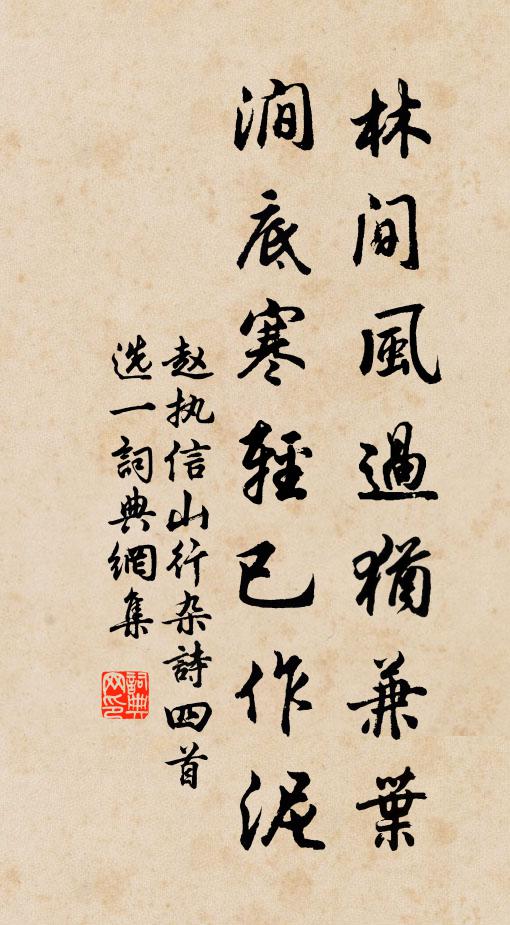 林间風過猶兼葉
澗底寒輕已作泥
赵执信山行杂詩四首
选一詞典網集
詞典網印